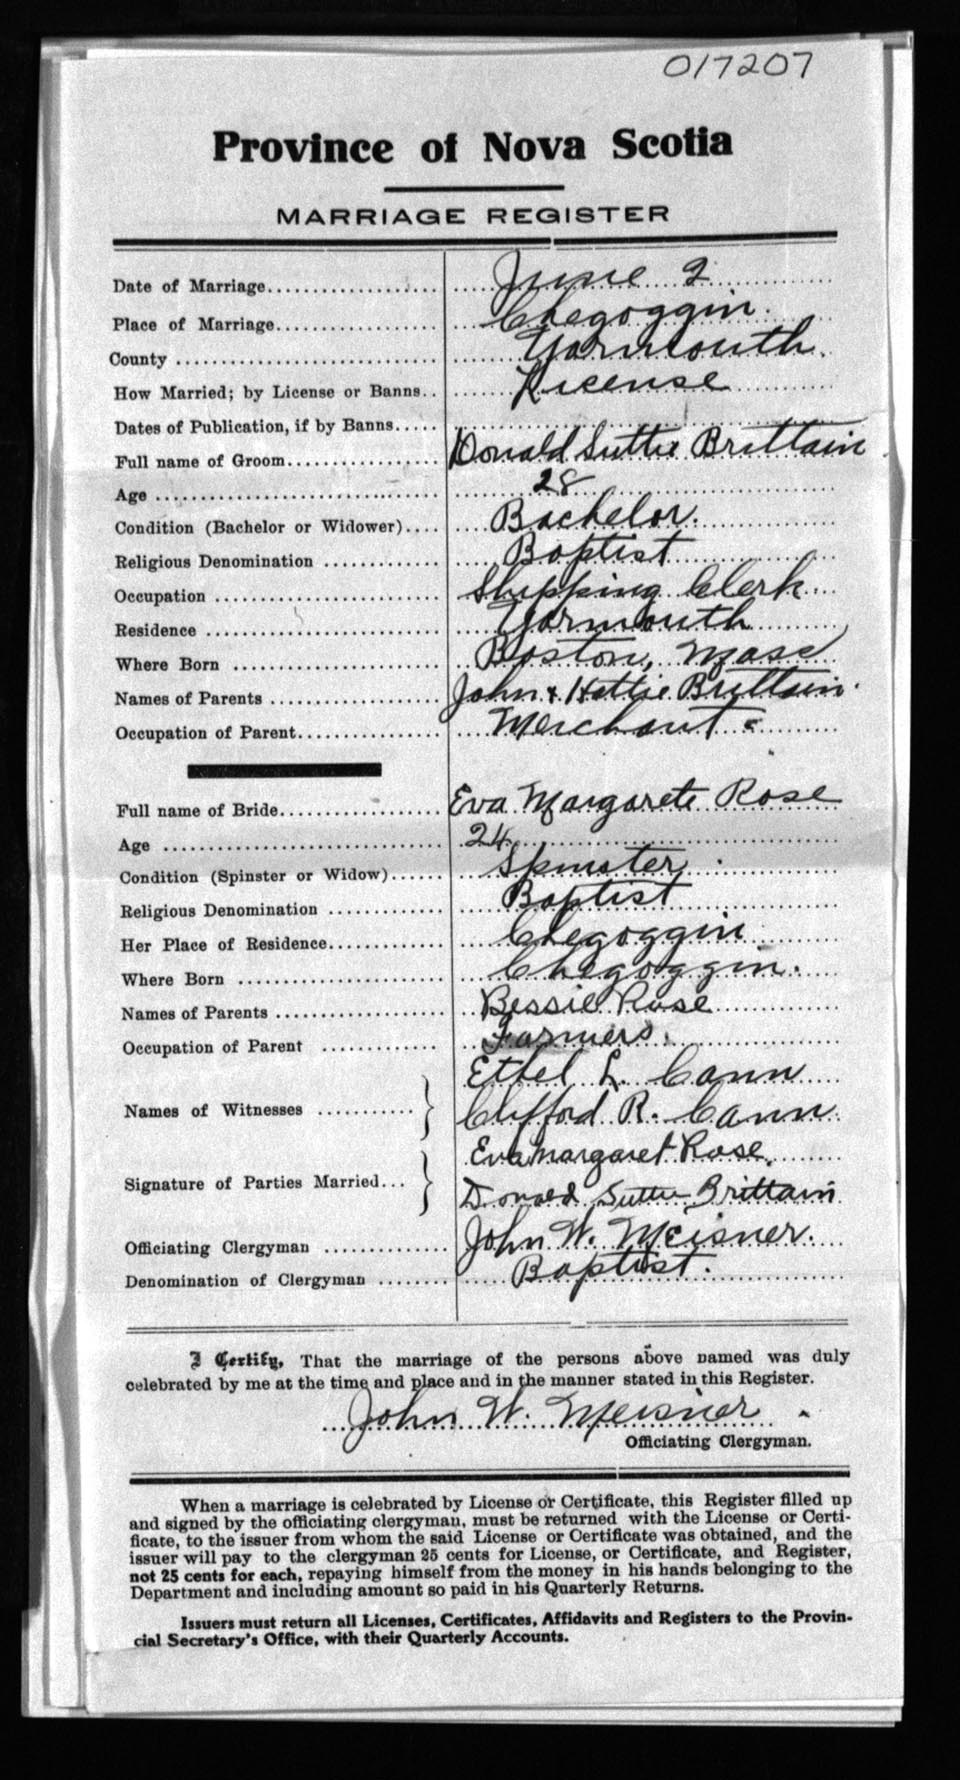 017207
Province of Nova Scotia
MARRIAGE REGISTER
Date of Marriage.................... June 2
Place of Marriage................... Chegoggin.
County ................................ Yarmouth.
How Married; by License or Banns.. License
Dates of Publication, if by Banns.....
Full name of Groom.................. Donald Suttie Brittain
Age .................................... 28
Condition (Bachelor or Widower).... Bachelor.
Religious Denomination .............. Baptist
Occupation ........................... Shipping Clerk
Residence ............................ Yarmouth
Where Born .......................... Boston, Mass
Names of Parents .................... John & Hettie Brittain.
Occupation of Parent................. Merchant
Full name of Bride.................... Eva Margarete Rose
Age .................................... 24
Condition (Spinster or Widow)...... Spinster
Religious Denomination .............. Baptist
Her Place of Residence.............. Chegoggin
Where Born .......................... Chegoggin.
Names of Parents .................... Bessie Rose
Occupation of Parent ................ Farmers.
Names of Witnesses .............. } Ethel L. Cann
Clifford R. Cann
Signature of Parties Married... } Eva Margaret Rose
Donald Suttie Brittain
Officiating Clergyman ............... John W. Meisner.
Denomination of Clergyman ........ Baptist.
I Certify, That the marriage of the persons above named was duly
celebrated by me at the time and place and in the manner stated in this Register.
John W. Meisner
Officiating Clergyman.
When a marriage is celebrated by License or Certificate, this Register filled up
and signed by the officiating clergyman, must be returned with the License or Certi-
ficate, to the issuer from whom the said License or Certificate was obtained, and the
issuer will pay to the clergyman 25 cents for License, or Certificate, and Register,
not 25 cents for each, repaying himself from the money in his hands belonging to the
Department and including amount so paid in his Quarterly Returns.
Issuers must return all Licenses, Certificates, Affidavits and Registers to the Provin-
cial Secretary's Office, with their Quarterly Accounts.